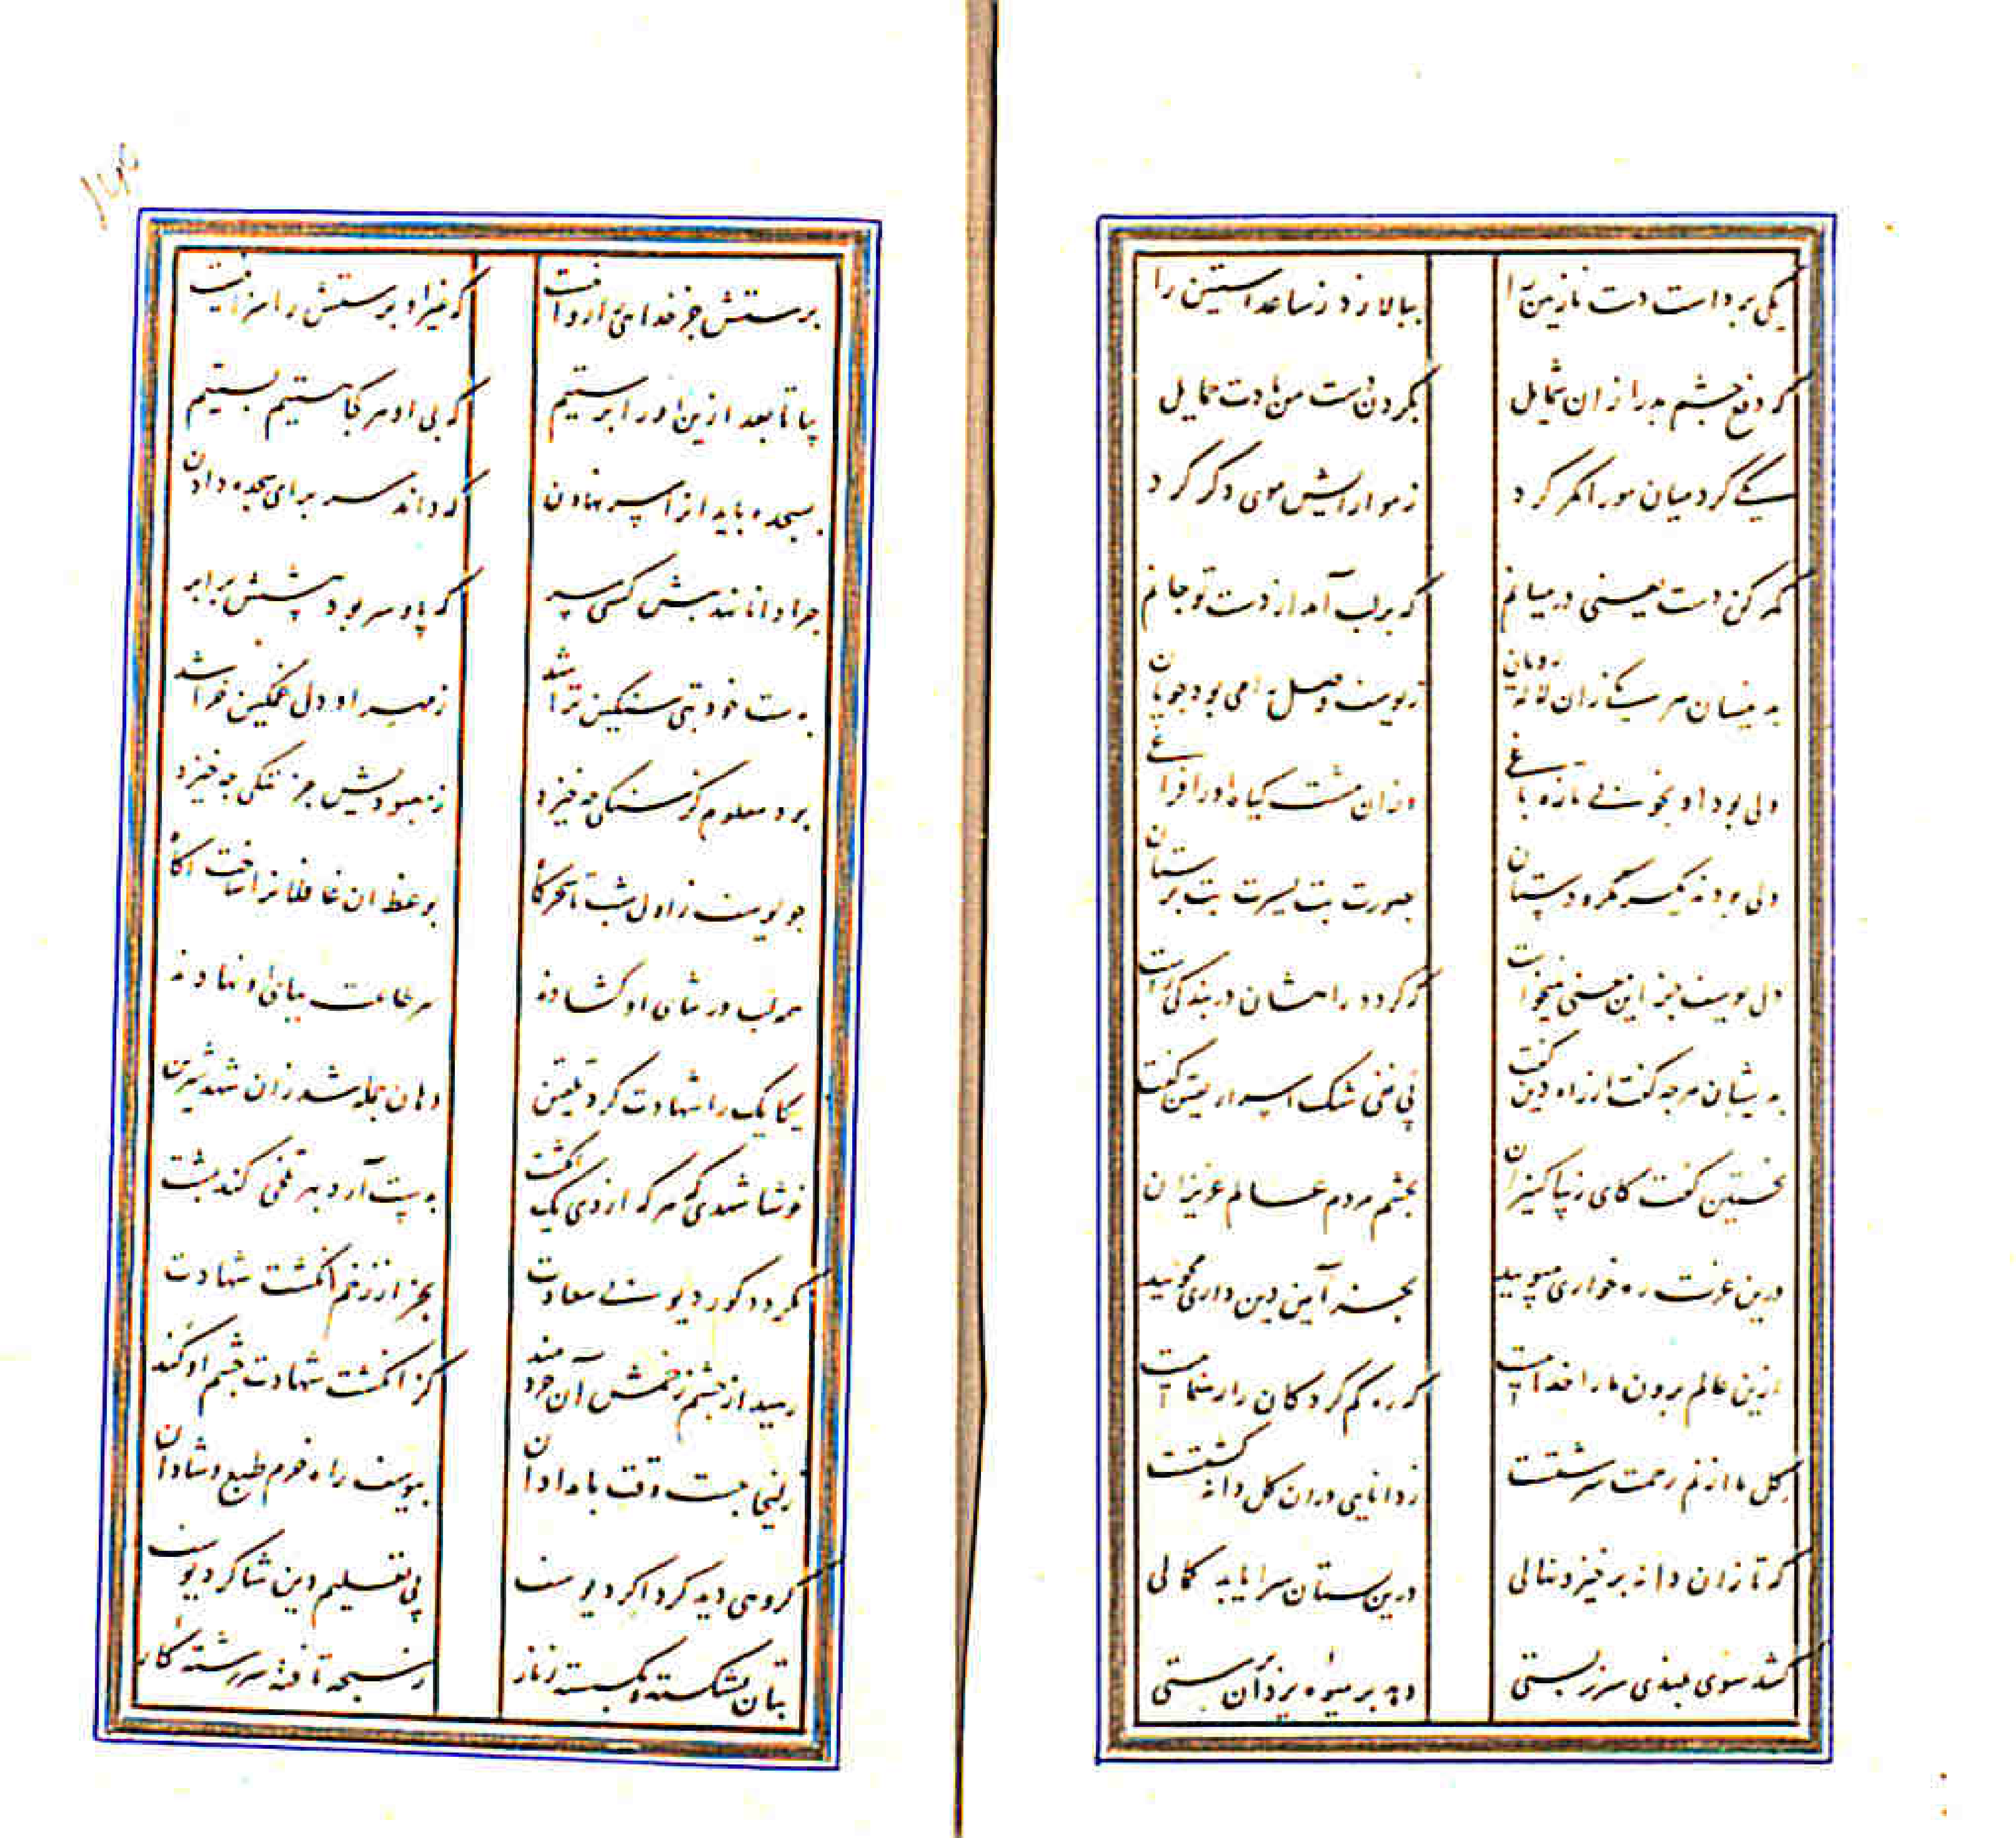 یکی برداشت دست نازنین را
ببالا زد ز ساعد آستین را
که دفع چشم بد را زان شمایل
بگردن دست من بادت حمایل
یکی کرد میان مو را کمر کرد
ز مو آرایش موی دگر کرد
کمر کن دست یعنی در میانم
که بر لب آمد از دست تو جانم
بدینسان هر یکی زان لاله رویان
ز یوسف وصل را می بود جویان
ولی بود او بخوبی تازه باغ
وزان مشت گیاه او را فراغ
ولی بودند یکسر مکر و دستان
بصورت بت بسیرت بت پرستان
دل یوسف جز این معنی نمیخواست
که گردد راهشان در بندگی راست
بدیشان هرچه گفت از راه دین گفت
پی نفی شک اسرار یقین گفت
نخستین گفت کای زیبا کنیزان
بچشم مردم عالم عزیزان
درین عزت ره خواری مپویید
بجز آیین دین داری مجویید
ازین عالم برون ما را خداییست
که ره گم کردگان را رهنماییست
گل ما از نم رحمت سرشتست
ز دانایی در آن گل دانه کشتست
که تا زان دانه برخیزد نهالی
درین بستان سرا یابد کمالی
کشد سوی بلندی سر ز پستی
دهد بر میوه یزدان پرستی
پرستش جز خدای را روا نیست
که غیر او پرستش را سزا نیست
بیا تا بعد ازین او را پرستیم
که بی او هر کجا هستیم پستیم
بسجده باید آن را سر نهادن
که داند سر برای سجده دادن
چرا دانا نهد پیش کسی سر
که پا و سر بود پیشش برابر
بدست خود بتی سنگین تراشد
ز مهر او دل غمگین خراشد
بود معلوم کز سنگی چه خیزد
ز معبودیش جز ننگی چه خیزد
چو یوسف ز اول شب تا سحرگاه
بوعظ آن غافلان را ساخت آگاه
همه لب در ثنای او گشادند
سر طاعت بپای او نهادند
یکایک را شهادت کرد تلقین
دهان جمله شد زان شهد شیرین
خوشا شهدی که هر که از وی یک انگشت
بدست آرد به تلخی کند پشت
نگردد کور دیو بی سعادت
بجز از زخم انگشت شهادت
رسید از چشم زخمش آن خردمند
کز انگشت شهادت چشم او کند
زلیخا جست وقت بامدادان
بیوسف راه خرم طبع و شادان
گروهی دید گرداگرد یوسف
پی تعلیم دین شاگرد یوسف
بتان بشکسته و بگسسته زنار
ز سبحه تافته سررشته کار